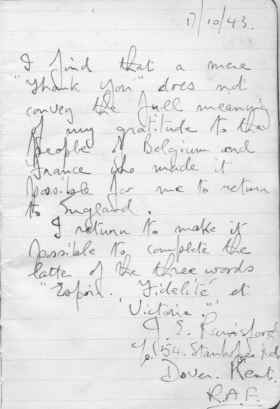 17/10/43.
I find that a mere
"Thank You" does not
convey the full meaning
of my gratitude to the
people of Belgium and
France who made it
possible for me to return
to England.
I return to make it
possible to complete the
latter of the three words
"Espoir, Fidelité et
Victoire."
J. E.
54. Stanhope Rd
Dover. Kent.
R.A.F.